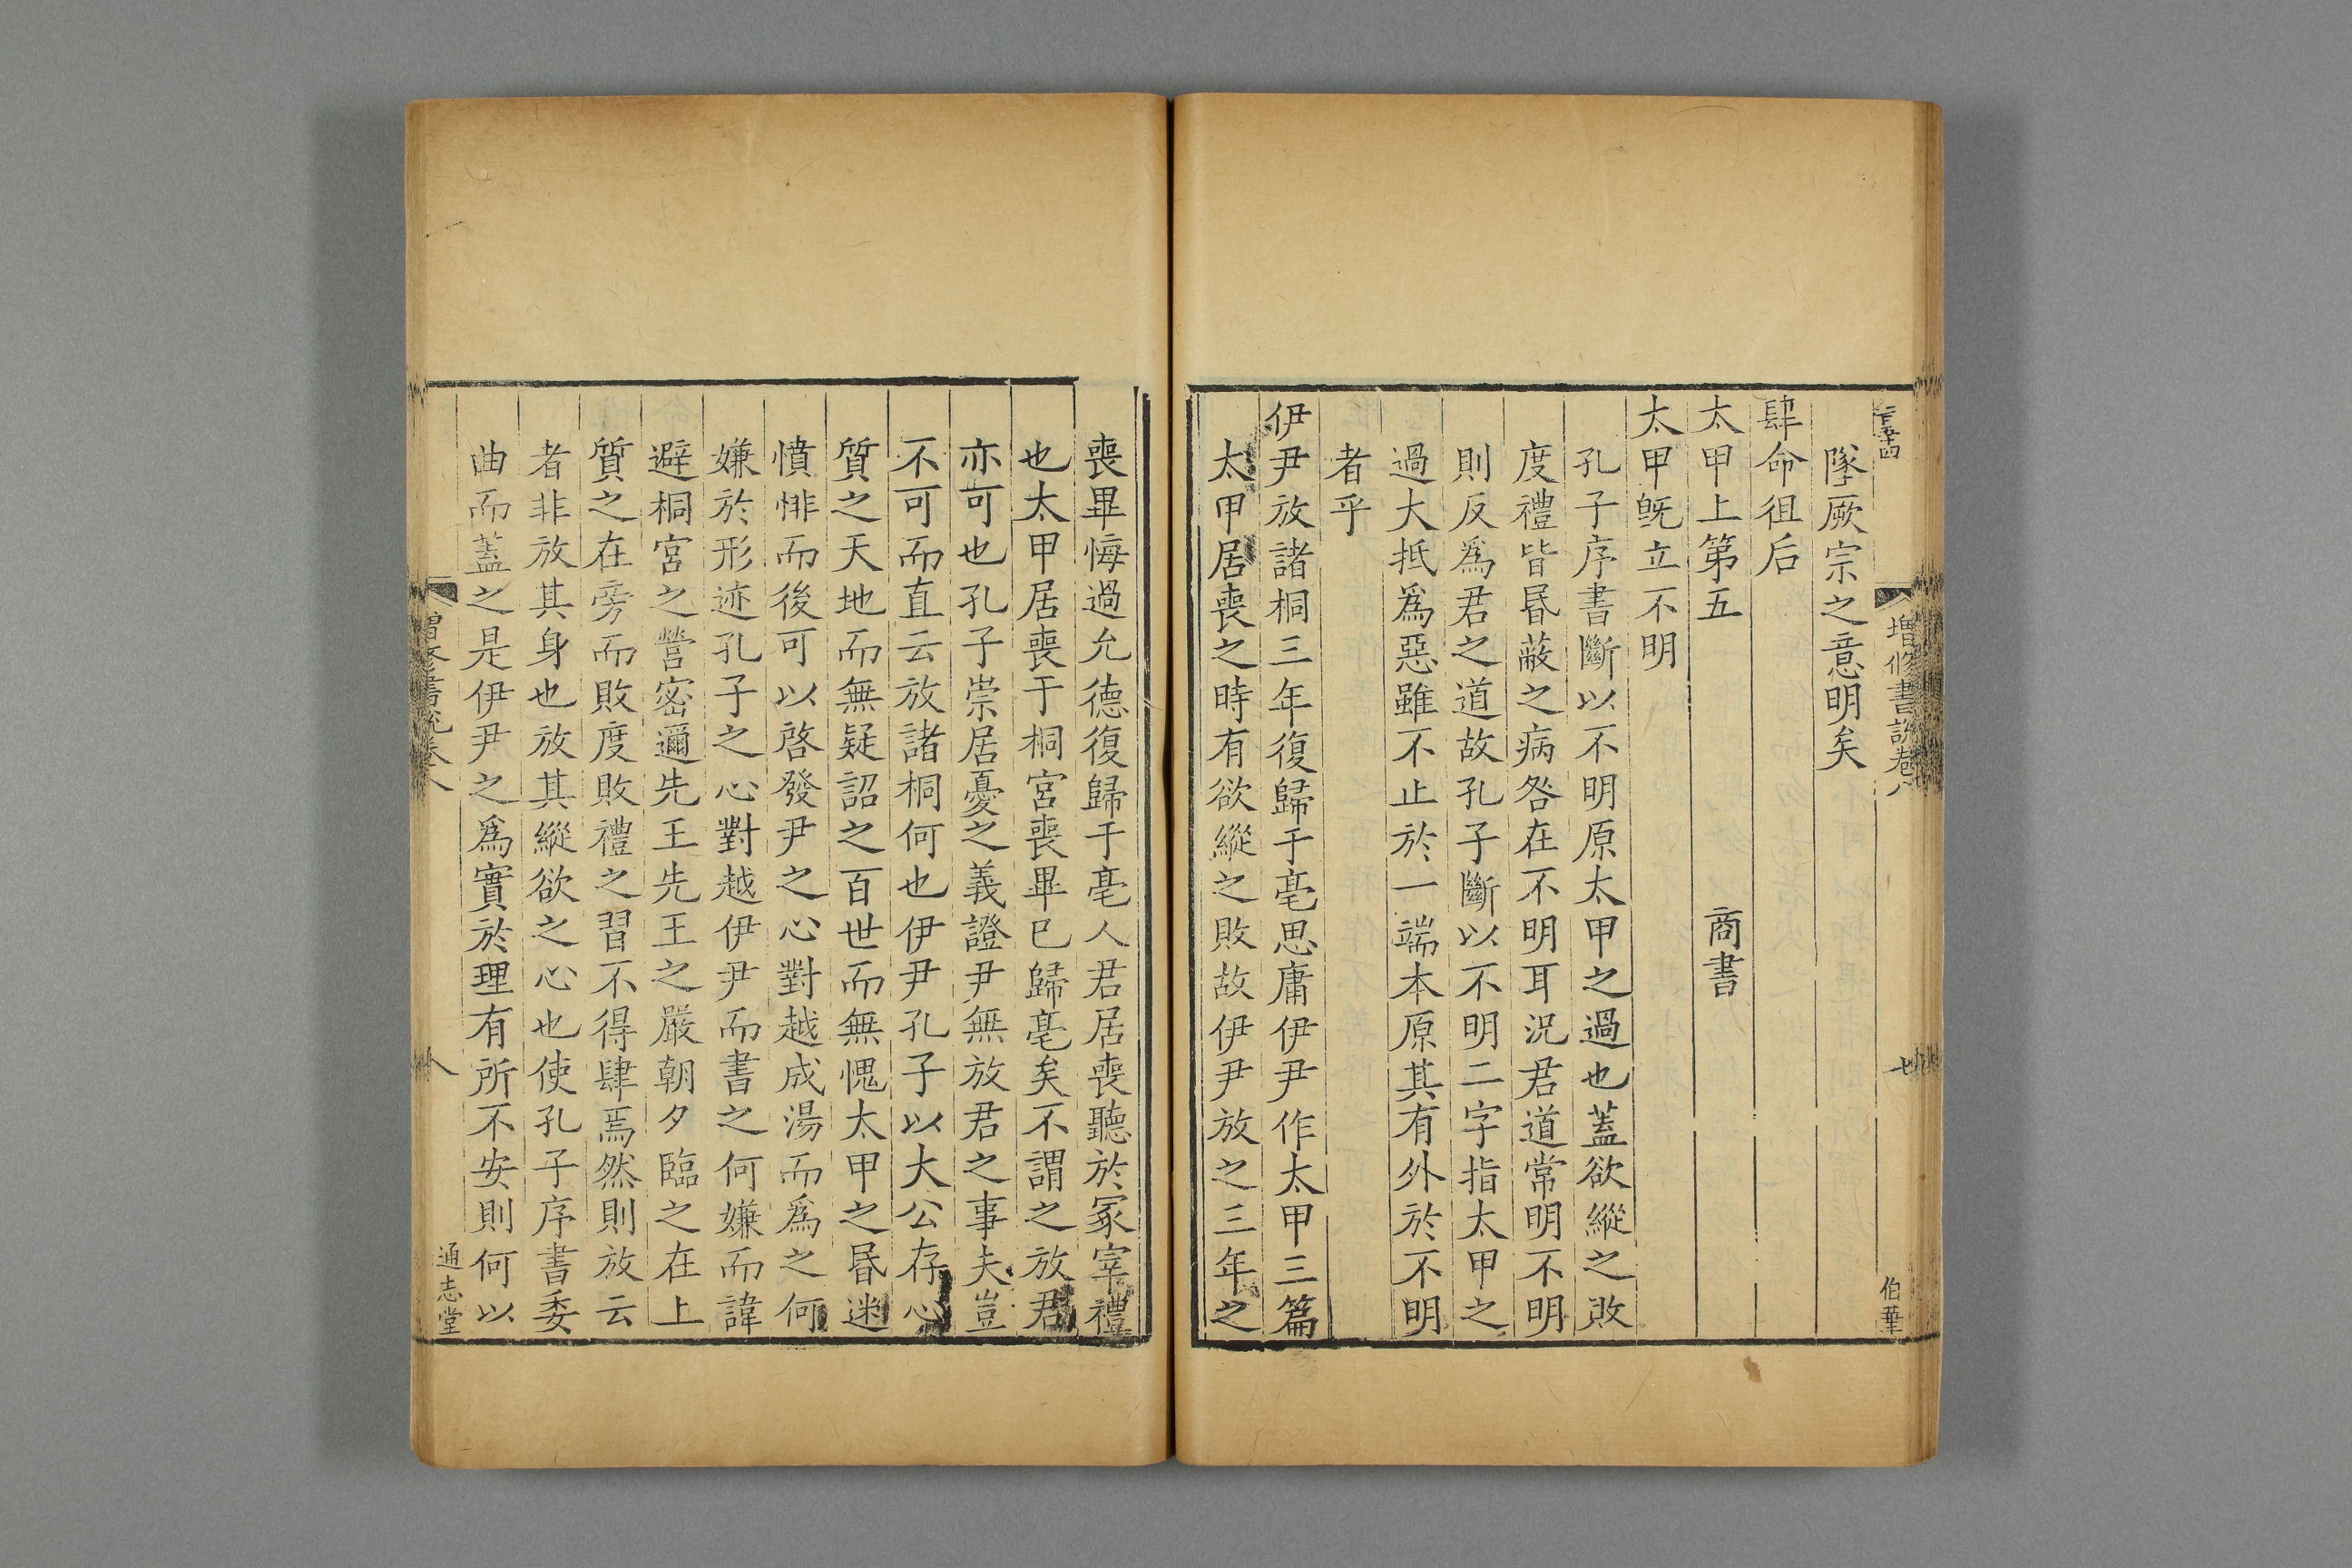 增修書說卷八
七
伯華
墜厥宗之意明矣
肆命徂后
太甲上第五 商書
太甲旣立不明
孔子序書斷以不明原太甲之過也蓋欲縱之敗
度禮皆昬蔽之病咎在不明耳況君道常明不明
則反爲君之道故孔子斷以不明二字指太甲之
過大抵爲惡雖不止於一端本原其有外於不明
者乎
伊尹放諸桐三年復歸于亳思庸伊尹作太甲三篇
太甲居喪之時有欲縱之敗故伊尹放之三年之
喪畢悔過允德復歸于亳人君居喪聽於冢宰禮
也太甲居喪于桐宮喪畢已歸亳矣不謂之放君
亦可也孔子崇居憂之義證尹無放君之事夫豈
不可而直云放諸桐何也伊尹孔子以大公存心
質之天地而無疑詔之百世而無愧太甲之昬迷
憤悱而後可以啓發尹之心對越成湯而爲之何
嫌於形迹孔子之心對越伊尹而書之何嫌而諱
避桐宮之營密邇先王先王之嚴朝夕臨之在上
質之在旁而敗度敗禮之習不得肆焉然則放云
者非放其身也放其縱欲之心也使孔子序書委
曲而蓋之是伊尹之爲實於理有所不安則何以
增修書說卷八
八
通志堂